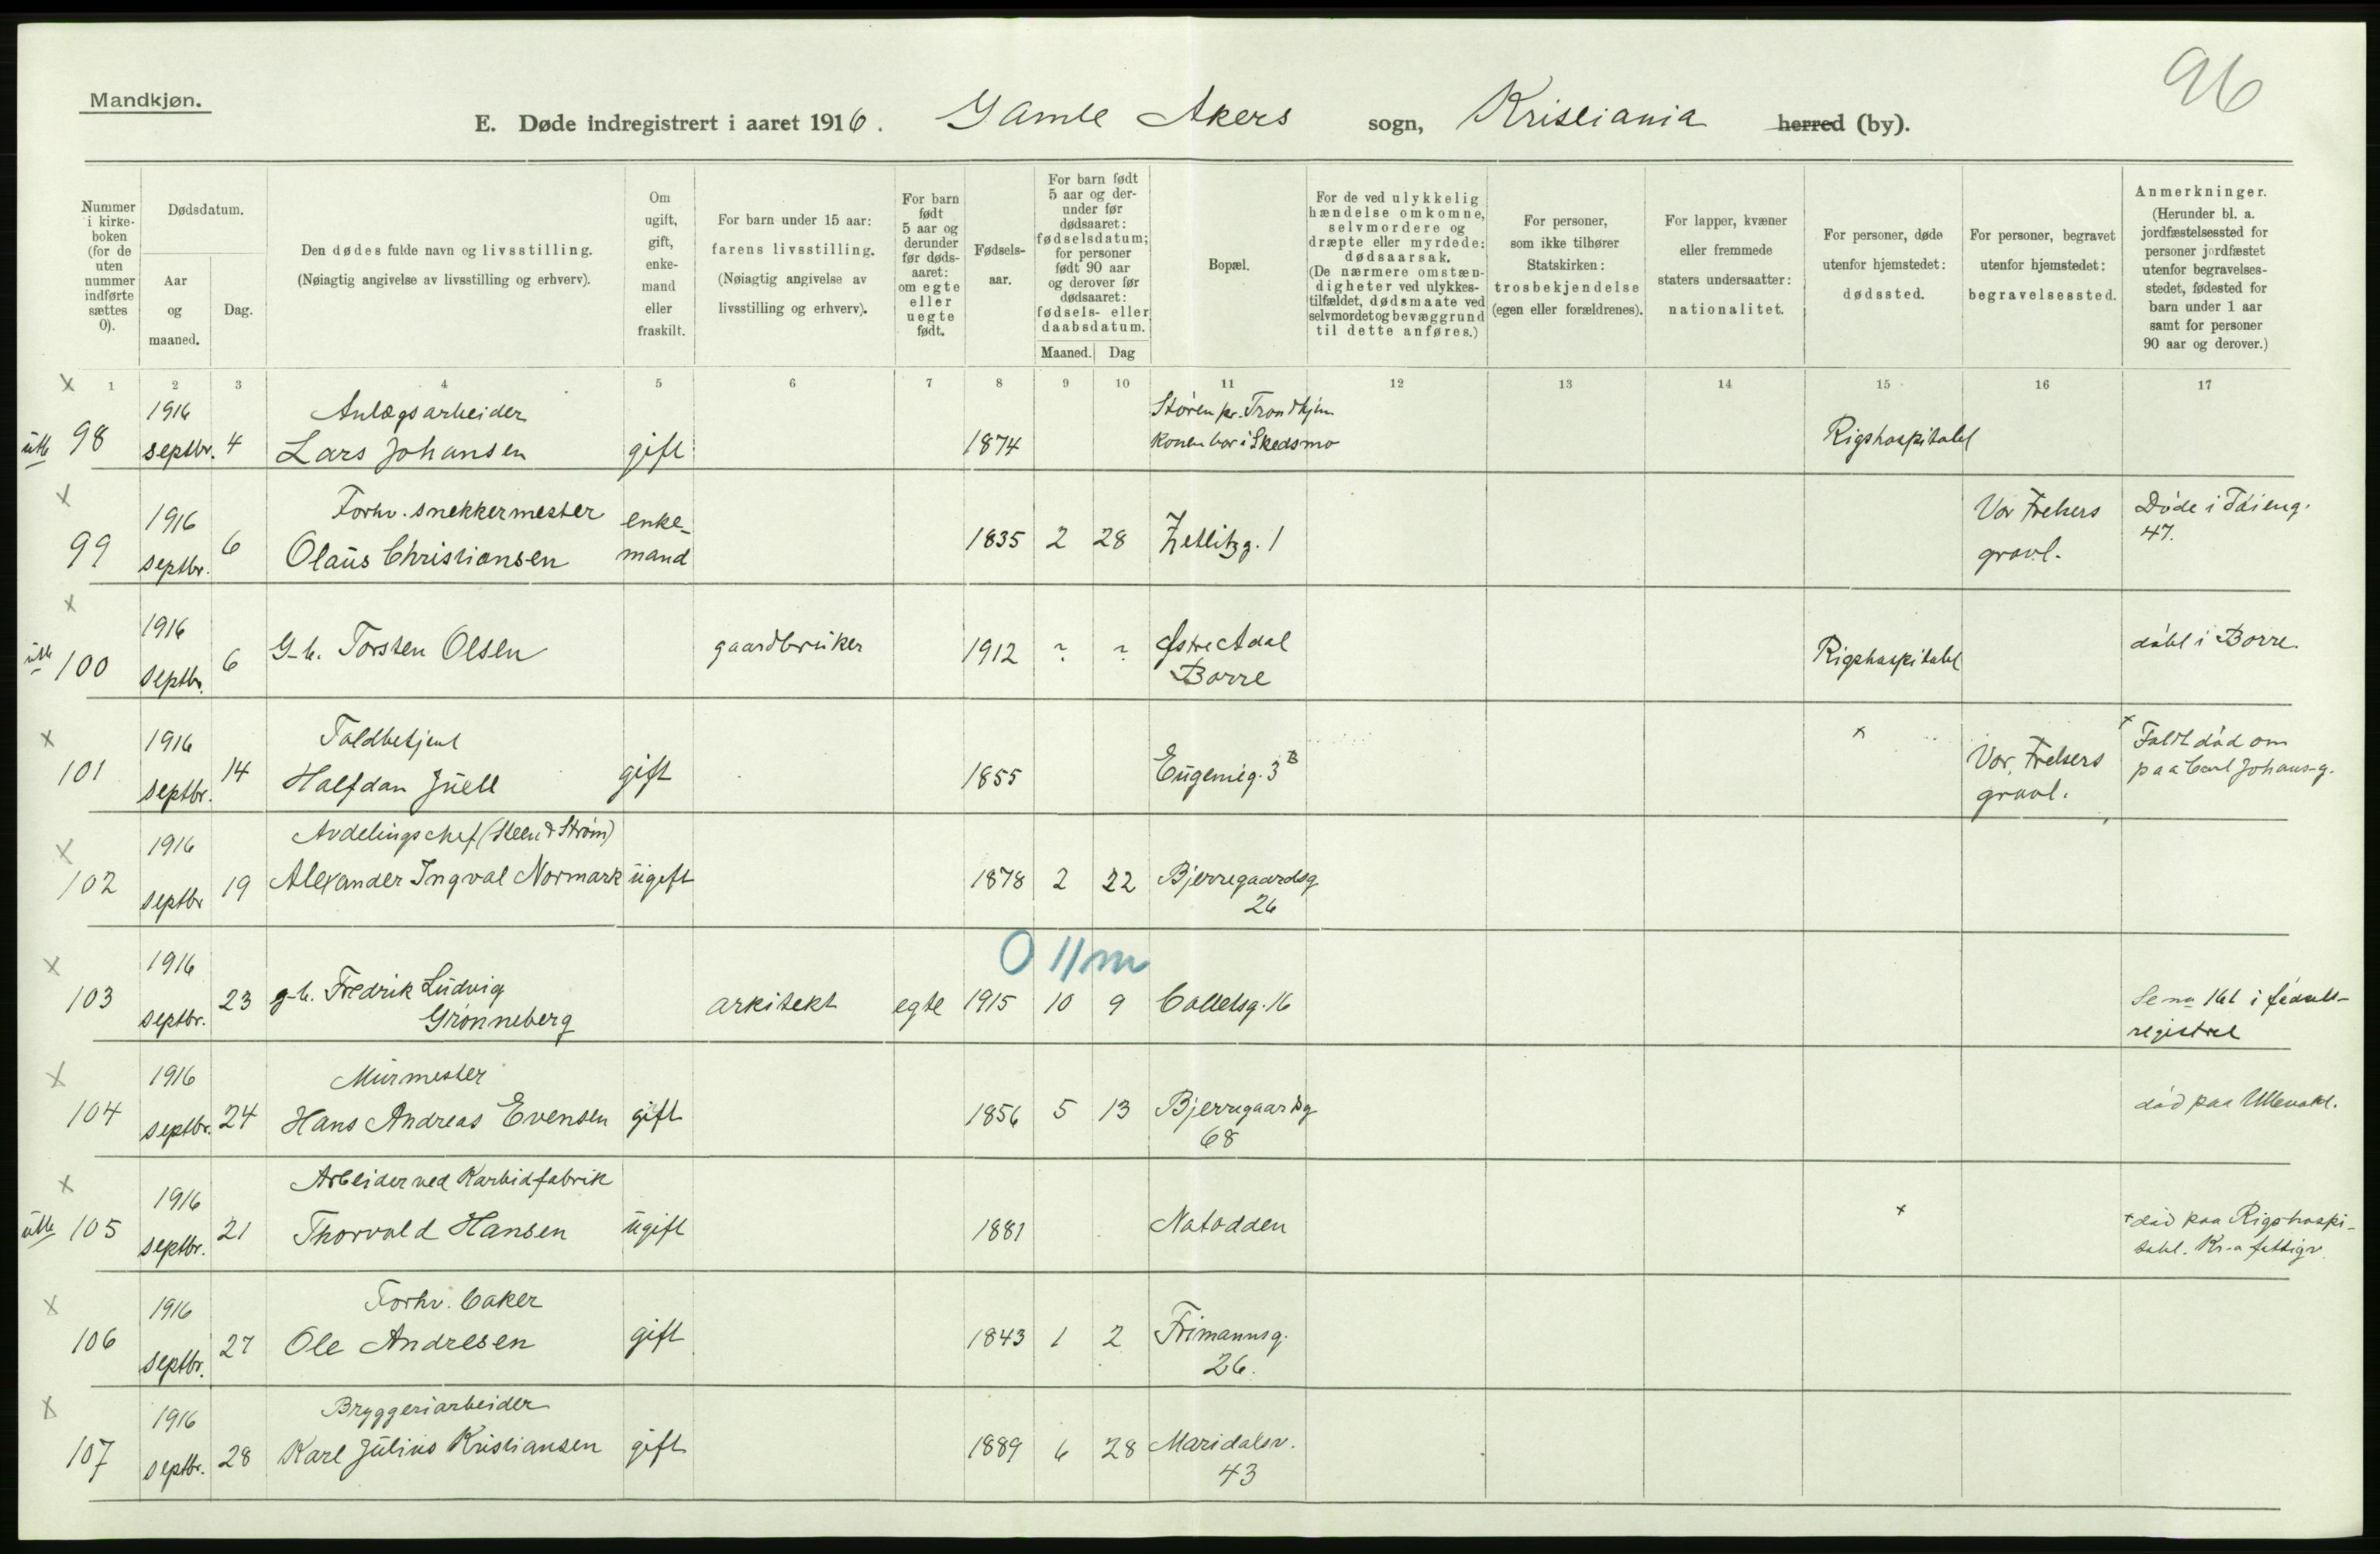 96
Mandkjøn.
E. Døde indregistrert i aaret 1916. Gamle Akers sogn, Kristiania herred (by).
Nummer i kirke-boken (for de uten nummer indførte sættes 0).
Dødsdatum.
Aar og maaned.
Dag.
Den dødes fulde navn og livsstilling.
(Nøiagtig angivelse av livsstilling og erhverv).
Om ugift, gift, enke-mand eller fraskilt.
For barn under 15 aar: farens livsstilling.
(Nøiagtig angivelse av livsstilling og erhverv).
For barn født 5 aar og derunder før døds-aaret: om egte eller uegte født.
Fødsels-aar.
For barn født 5 aar og der-under før dødsaaret: fødselsdatum; for personer født 90 aar og derover før dødsaaret: fødsels- eller daabsdatum.
Maaned. Dag
Bopæl.
For de ved ulykkelig hændelse omkomne, selvmordere og dræpte eller myrdede: dødsaarsak. (De nærmere omstæn-digheter ved ulykkes-tilfældet, dødsmaate ved selvmordet og bevæggrund til dette anføres.)
For personer, som ikke tilhører Statskirken: trosbekjendelse (egen eller forældrenes).
For lapper, kvæner eller fremmede staters undersaatter: nationalitet.
For personer, døde utenfor hjemstedet: dødssted.
For personer, begravet utenfor hjemstedet: begravelsessted.
Anmerkninger. (Herunder bl. a. jordfæstelsessted for personer jordfæstet utenfor begravelses-stedet, fødested for barn under 1 aar samt for personer 90 aar og derover.)
x 1 2 3 4 5 6 7 8 9 10 11 12 13 14 15 16 17
1916 Anlægsarbeider Støren pr. Trondhjem
98 septbr. 4 Lars Johansen gift 1874 Konen bor i Skedsmo Rigshospitalet
x 1916 Forhv. snekkermester enke- Vor Frelsers Døde i Tøieng.
99 septbr. 6 Olaus Christiansen mand 1835 2 28 Zetlitzg. 1 gravl. 47.
x 1916 Østre Adal
100 septbr. 6 G-b. Torsten Olsen gaardbruker 1912 ? ? Borre Rigshospitalet døbt i Borre.
x 1916 Toldbetjent x Vor Frelsers x Faldt død om
101 septbr. 14 Halfdan Juell gift 1855 Eugenieg. 3 B gravl. paa Carl Johans-g.
x 1916 Avdelingschef (Steen & Strøm)
102 septbr 19 Alexander Ingval Normark ugift 1878 2 22 Bjerregaardsg
26
0 11 m
x 1916 g-b. Fredrik Ludvig
103 septbr. 23 Grønneberg arkitekt egte 1915 10 9 Colletsg. 16 Se no 161 i fødsels-
registret
x 1916 Murmester
104 septbr. 24 Hans Andreas Evensen gift 1856 5 13 Bjerregaardsg død paa Ullevaal.
68
x 1916 Arbeider ved Karbidfabrik
105 septbr. 21 Thorvald Hansen ugift 1881 Notodden x x død paa Rigshospi-
talet. Kr-a fattigv.
x 1916 Forhv. baker
106 septbr. 27 Ole Andresen gift 1843 1 2 Frimannsg.
26.
x 1916 Bryggeriarbeider
107 septbr. 28 Karl Julius Kristiansen gift 1889 6 28 Maridalsv.
43